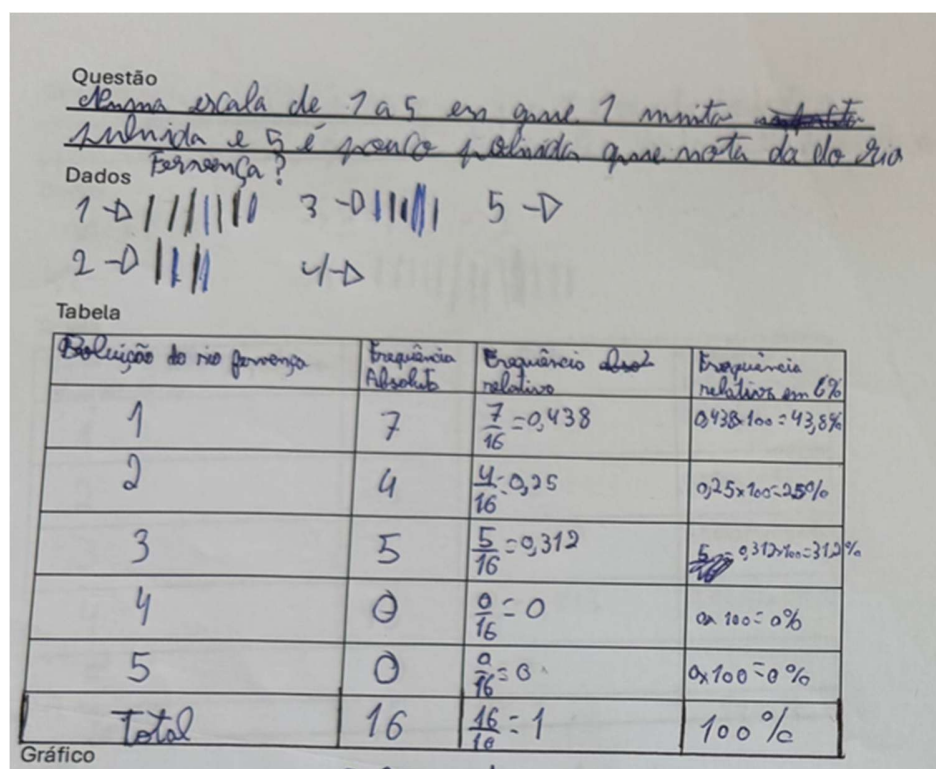 Questão
Numa escala de 1 a 5 em que 1 muita
puluida e 5 é pouco poluida que nota da do rio
Fervença?
Dados
1 → ||||||| 3 → ||||| 5 →
2 → |||| 4 →
Tabela
Poluição do rio fervença | Frequência Absoluta | Frequência relativa | Frequência relativa em %
1 | 7 | 7/16 = 0,438 | 0,438×100 = 43,8%
2 | 4 | 4/16 = 0,25 | 0,25×100 = 25%
3 | 5 | 5/16 = 0,312 | 0,312×100 = 31,2%
4 | 0 | 0/16 = 0 | 0×100 = 0%
5 | 0 | 0/16 = 0 | 0×100 = 0%
Total | 16 | 16/16 = 1 | 100%
Gráfico